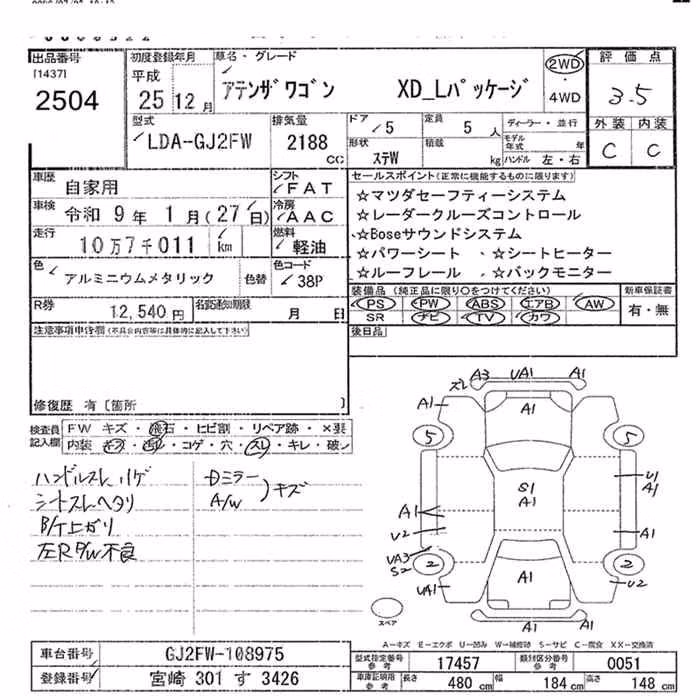 出品番号
[1437]
2504
初度登録年月
平成
25年12月
車名・グレード
アテンザワゴン XD_Lパッケージ
2WD
・
4WD
評価点
3.5
外装 内装
C C
型式
LDA-GJ2FW
排気量
2188
cc
ドア
5
形状
ステW
定員
5人
積載
kg
ディーラー・並行
モデル年式 年
ハンドル 左・右
車歴 自家用
車検 令和 9年 1月(27日)
走行 10万7千011 km
色 アルミニウムメタリック 色替
シフト FAT
冷房 AAC
燃料 軽油
色コード 38P
R券 12,540円
名変通知期限 月 日
セールスポイント(正常に機能するものに限ります)
☆マツダセーフティーシステム
☆レーダークルーズコントロール
☆Boseサウンドシステム
☆パワーシート ☆シートヒーター
☆ルーフレール ☆バックモニター
装備品(純正品に限り○をつけてください)
PS PW ABS エアB AW
SR ナビ TV カワ
新車保証書
有・無
後日品
注意事項申告欄(不具合内容等は具体的に記入して下さい)
修復歴 有 [箇所 ]
検査員記入欄
FW キズ・飛石・ヒビ割・リペア跡・×張
内装 キズ・汚レ・コゲ・穴・スレ・キレ・破レ
ハンドルスレ ハゲ
シートスレ ヘタリ
B/T上がり
左R P/W不良
Dミラー
A/W
キズ
A3 UA1 A1
ズレ
A1 A1
5 5
S1
A1
U1
A1
A1
U2
A1
UA3
S2
2 2
UA1 A1 U2
A1 A1
スペア
A-キズ E-エクボ U-凹み W-補修跡 S-サビ C-腐食 XX-交換済
車台番号 GJ2FW-108975
登録番号 宮崎 301 す 3426
型式指定番号 参考 17457
類別区分番号 参考 0051
車庫証明用 参考 長さ 480 cm 幅 184 cm 高さ 148 cm